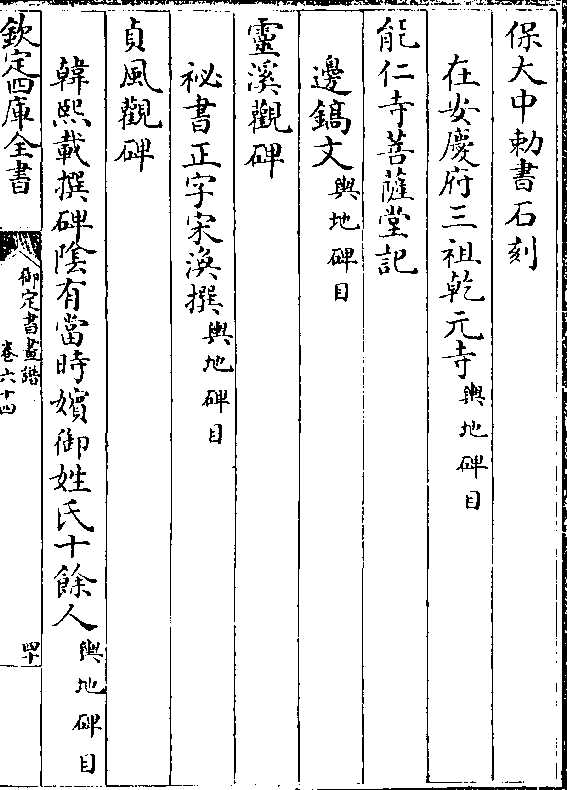 保大中勅書石刻
在安慶府三祖乾元寺輿地碑目
能仁寺菩薩堂記
邊鎬文輿地碑目
靈溪觀碑
祕書正字宋渙撰輿地碑目
貞風觀碑
韓熙載撰碑陰有當時嬪御姓氏十餘人輿地碑目
欽定四庫全書
御定書畫譜
卷六十四
四十